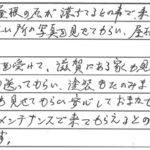 屋根の瓦が凄てるとの事で来
い所の写真も見せてもらい、屋根
を受けて、滋賀にある家も見
送ってもらい、塗装もたのみま
も見せてもらい安心しておまかせで
メンテナンスで来てもらえるとの
す。